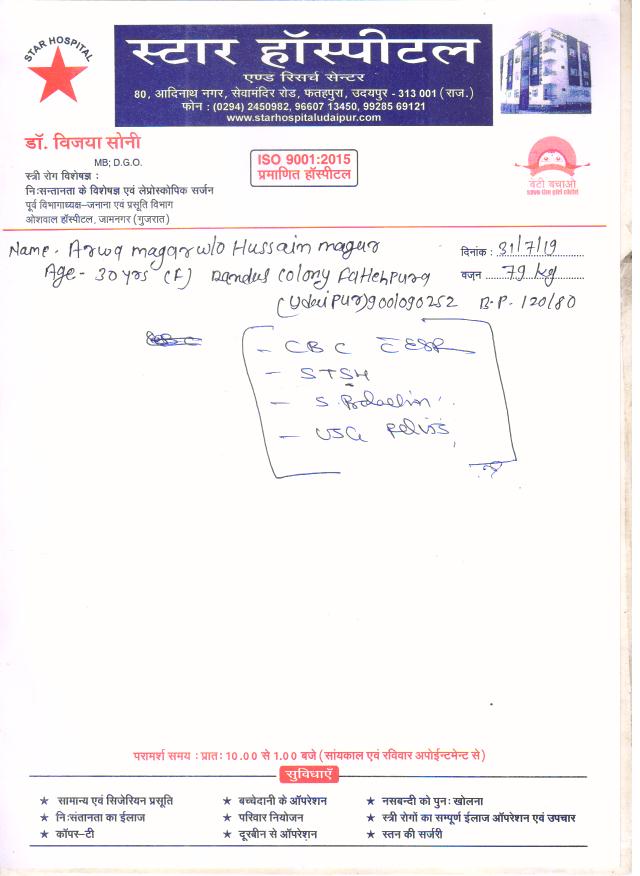 STAR HOSPITAL
स्टार हॉस्पीटल
एण्ड रिसर्च सेन्टर
80, आदिनाथ नगर, सेवामंदिर रोड, फतहपुरा, उदयपुर - 313 001 (राज.)
फोन : (0294) 2450982, 96607 13450, 99285 69121
www.starhospitaludaipur.com
डॉ. विजया सोनी
MB; D.G.O.
स्त्री रोग विशेषज्ञ :
निःसन्तानता के विशेषज्ञ एवं लेप्रोस्कोपिक सर्जन
पूर्व विभागाध्यक्ष-जनाना एवं प्रसूति विभाग
ओशवाल हॉस्पीटल, जामनगर (गुजरात)
ISO 9001:2015
प्रमाणित हॉस्पीटल
बेटी बचाओ
Name. Arwa magar w/o Hussain magur
दिनांक : 31/7/19
Age - 30 yrs (F) Colony Fatehpura
वजन 79 kg
(Udaipur) 9001090252 B.P. 120/80
- CBC ESR
- STSH
- S.
- USG Pelvis
परामर्श समय : प्रातः 10.00 से 1.00 बजे (सांयकाल एवं रविवार अपोईन्टमेन्ट से)
सुविधाएँ
★ सामान्य एवं सिजेरियन प्रसूति ★ बच्चेदानी के ऑपरेशन ★ नसबन्दी को पुनः खोलना
★ निःसंतानता का ईलाज ★ परिवार नियोजन ★ स्त्री रोगों का सम्पूर्ण ईलाज ऑपरेशन एवं उपचार
★ कॉपर-टी ★ दूरबीन से ऑपरेशन ★ स्तन की सर्जरी